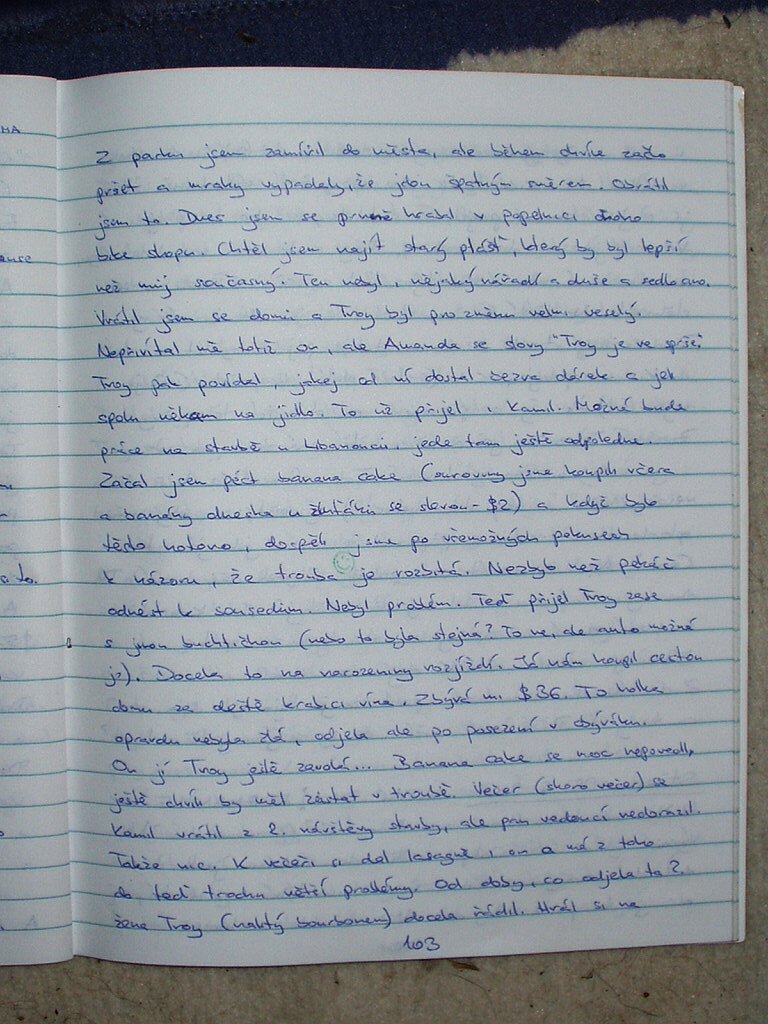 HA
Z parku jsem zamířil do města, ale během chvíle začlo
pršet a mraky vypadaly, že jdou špatným směrem. Obrátil
jsem to. Dnes jsem se prvně hrabal v popelnici
bike shopu. Chtěl jsem najít starý plášť, který by byl lepší
než můj současný. Ten nebyl, nějaký nářadí a duše a sedlo ano.
Vrátil jsem se domů a Troy byl pro změnu velmi veselý.
Nepřivítal mě totiž on, ale Amanda se slovy "Troy je ve sprše".
Troy pak povídal, jakej od ní dostal bezva dárek a jeli
spolu někam na jídlo. To už přijel i Kamil. Možná bude
práce na stavbě u Libanonců, jede tam ještě odpoledne.
Začal jsem péct banana cake (suroviny jsme koupili včera
a banány dneska u žluťáků se slevou - $2) a když bylo
těsto hotovo, dospěli jsme po všemožných pokusech
k názoru, že trouba je rozbitá. Nezbylo než pekáč
odnést k sousedům. Nebyl problém. Teď přijel Troy zase
s jinou buchtičkou (nebo to byla stejná? To ne, ale auto možná
jo). Docela to na narozeniny rozjíždí. Já nám koupil cestou
domů za deště krabici vína. Zbývá mi $36. To holka
opravdu nebyla zlá, odjela ale po posezení v obýváku.
On jí Troy ještě zavolá... Banana cake se moc nepovedl,
ještě chvíli by měl zůstat v troubě. Večer (skoro večer) se
Kamil vrátil z 2. návštěvy stavby, ale pan vedoucí nedorazil.
Takže nic. K večeři si dal lasagně i on a má z toho
do teď trochu větší problémy. Od doby, co odjela ta 2.
žena Troy (nalitý bourbonem) docela řádil. Hrál si na
103